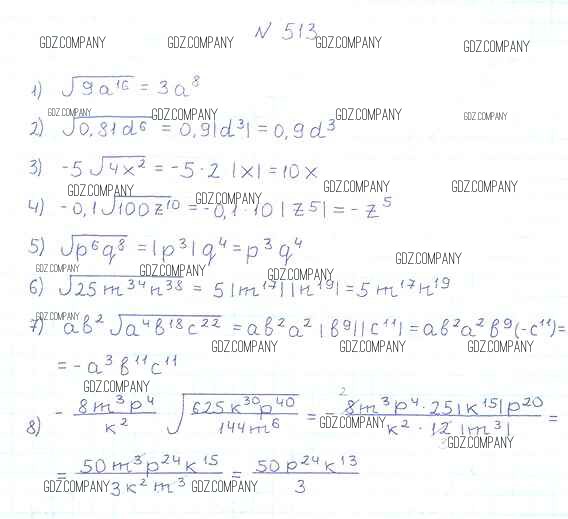 N 513
GDZ.COMPANY GDZ.COMPANY GDZ.COMPANY GDZ.COMPANY
1) √9a¹⁶ = 3a⁸
GDZ.COMPANY GDZ.COMPANY GDZ.COMPANY GDZ.COMPANY
2) √0,81d⁶ = 0,9|d³| = 0,9d³
3) -5√4x² = -5·2|x| = 10x
GDZ.COMPANY GDZ.COMPANY GDZ.COMPANY GDZ.COMPANY
4) -0,1√100z¹⁰ = -0,1·10|z⁵| = -z⁵
5) √p⁶q⁸ = |p³|q⁴ = p³q⁴
GDZ.COMPANY GDZ.COMPANY GDZ.COMPANY GDZ.COMPANY
6) √25m³⁴n³⁸ = 5|m¹⁷||n¹⁹| = 5m¹⁷n¹⁹
GDZ.COMPANY
7) ab²√a⁴b¹⁸c²² = ab²a²|b⁹||c¹¹| = ab²a²b⁹(-c¹¹) =
GDZ.COMPANY GDZ.COMPANY GDZ.COMPANY
= -a³b¹¹c¹¹
GDZ.COMPANY
8) - 8m³p⁴/k² √625k³⁰p⁴⁰/144m⁶ = - ²8m³p⁴·25|k¹⁵|p²⁰/k²·12|m³| =
GDZ.COMPANY GDZ.COMPANY
= 50m³p²⁴k¹⁵/3k²m³ = 50p²⁴k¹³/3
GDZ.COMPANY GDZ.COMPANY